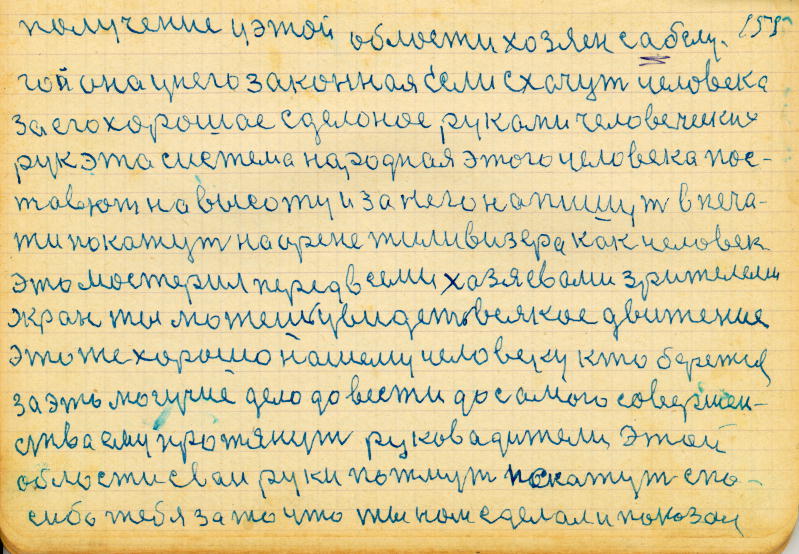 получение у этой области хозяен сабслу. 159
гой она у него законная если схочут человека
за его хорошае сделоное руками человеческих
рук эта система народная этого человека пос-
тавют на высоту и за него напишут в печа-
ти покажут на орене тиливизера как человек
это мостерил перед всеми хазяевами зрителеми
экран ты можеш увидеть всякое движение
это же хорошо нашему человеку кто бережця
за эть могучие дело довести до самого совершен-
ства ему протянут руковадители этой
области сваи руки пожмут покажут спо-
сибо тебя за то что ты ном сделал и показал